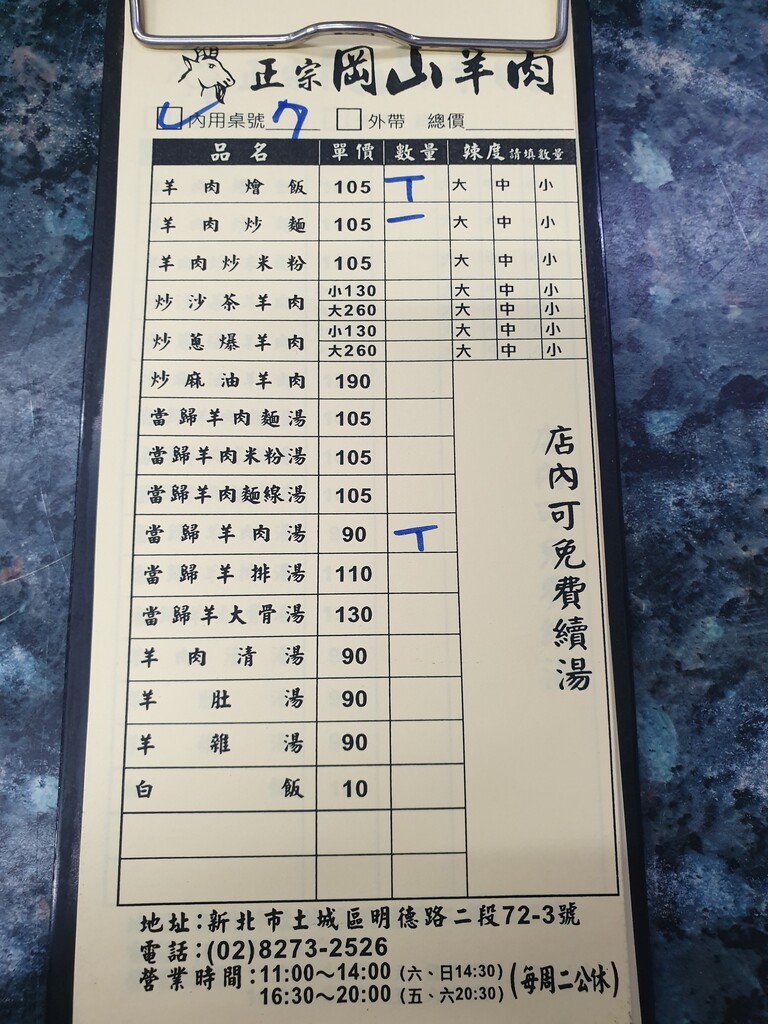 正宗岡山羊肉
內用桌號 7 外帶 總價
品名 單價 數量 辣度 請填數量
羊肉燴飯 105 T 大 中 小
羊肉炒麵 105 一 大 中 小
羊肉炒米粉 105 大 中 小
炒沙茶羊肉 小130 大 中 小
大260 大 中 小
炒蔥爆羊肉 小130 大 中 小
大260 大 中 小
炒麻油羊肉 190
當歸羊肉麵湯 105
當歸羊肉米粉湯 105
當歸羊肉麵線湯 105
當歸羊肉湯 90 T
當歸羊排湯 110
當歸羊大骨湯 130
羊肉清湯 90
羊肚湯 90
羊雜湯 90
白飯 10
店內可免費續湯
地址:新北市土城區明德路二段72-3號
電話:(02)8273-2526
營業時間:11:00～14:00 (六、日14:30) (每周二公休)
16:30～20:00 (五、六20:30)